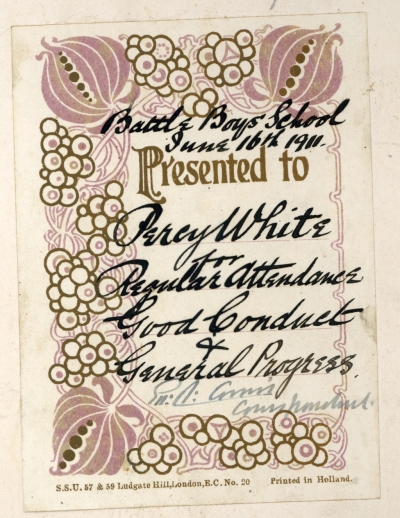 Battle Boys' School
June 16th 1911.
Presented to
Percy White
for
Regular Attendance
Good Conduct
&
General Progress.
Correspondent.
S.S.U. 57 & 59 Ludgate Hill, London, E.C. No. 20 Printed in Holland.